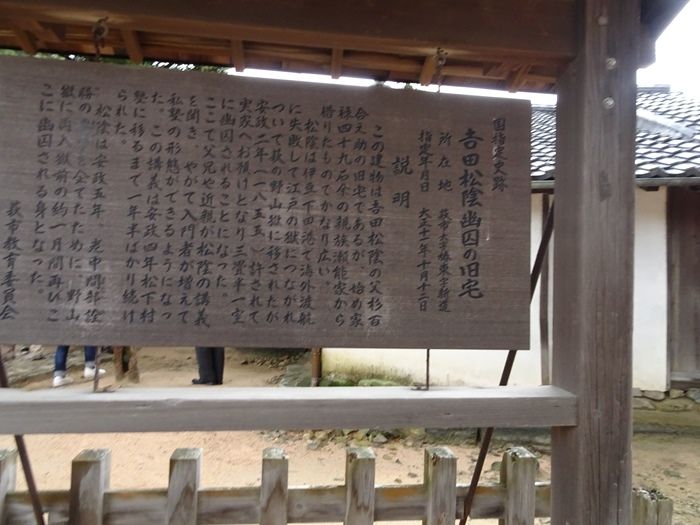 国指定史跡
吉田松陰幽囚の旧宅
所在地 萩市大字椿東字新道
指定年月日 大正十一年十月十二日
説明
この建物は吉田松陰の父杉百
合之助の旧宅であるが、始め家
禄四十九石余の親族瀬能家から
借りたものでかなり広い。
松陰は伊豆下田港で海外渡航
に失敗して江戸の獄につながれ
ついで萩の野山獄に移されたが
安政二年(一八五五)許されて
実家へお預けとなり三畳半一室
に幽囚されることになった。
ここで父兄や近親が松陰の講義
を聞き、やがて入門者が増えて
私塾の形態ができるようになっ
た。この講義は安政四年松下村
塾に移るまで一年半ばかり続け
られた。
松陰は安政五年 老中間部詮
勝の を企てたために、野山
獄に再入獄前の約一月間再びこ
こに幽囚される身となった。
萩市教育委員会